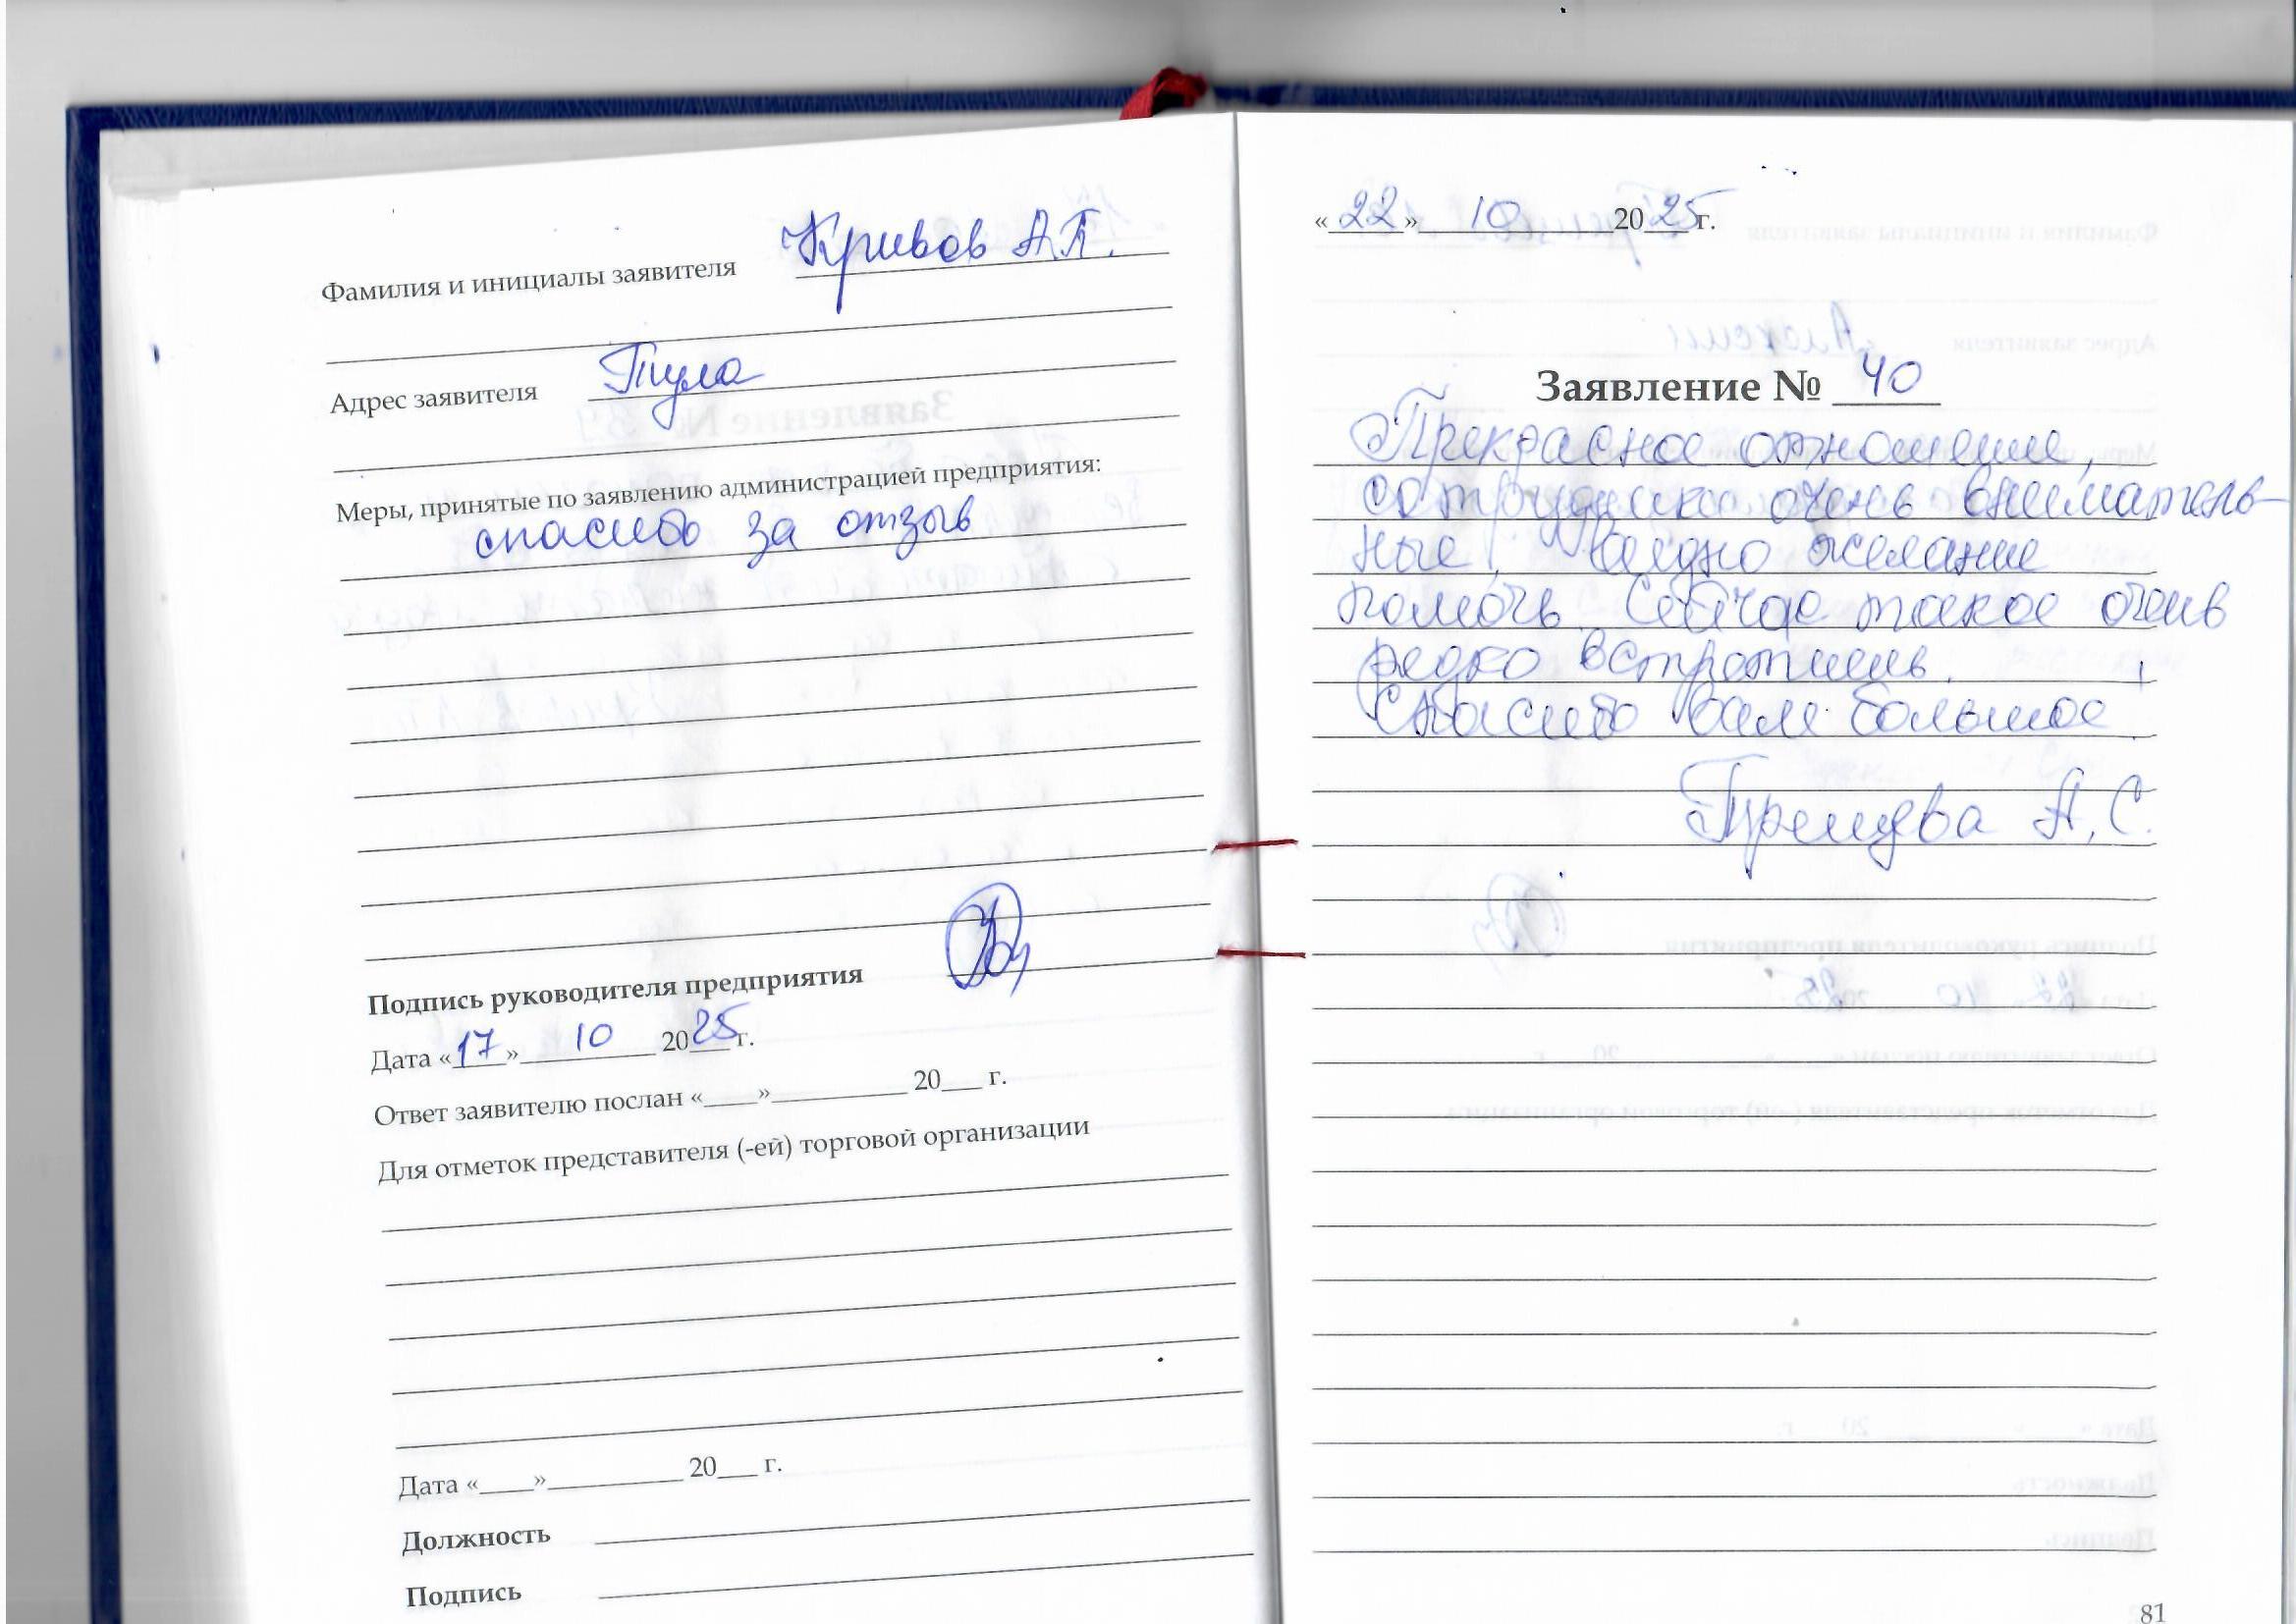 Фамилия и инициалы заявителя Кривов А.П.
Адрес заявителя Тула
Меры, принятые по заявлению администрацией предприятия:
спасибо за отзыв
Подпись руководителя предприятия
Дата «17» 10 2025 г.
Ответ заявителю послан «____»__________ 20___ г.
Для отметок представителя (-ей) торговой организации
Дата «____»__________ 20___ г.
Должность
Подпись
«22» 10 2025г.
Заявление № 40
Прекрасное отношение,
сотрудники очень вниматель-
ные. Видно желание
помочь. Сейчас такое очень
редко встретишь.
Спасибо вам большое!
А.С.
81